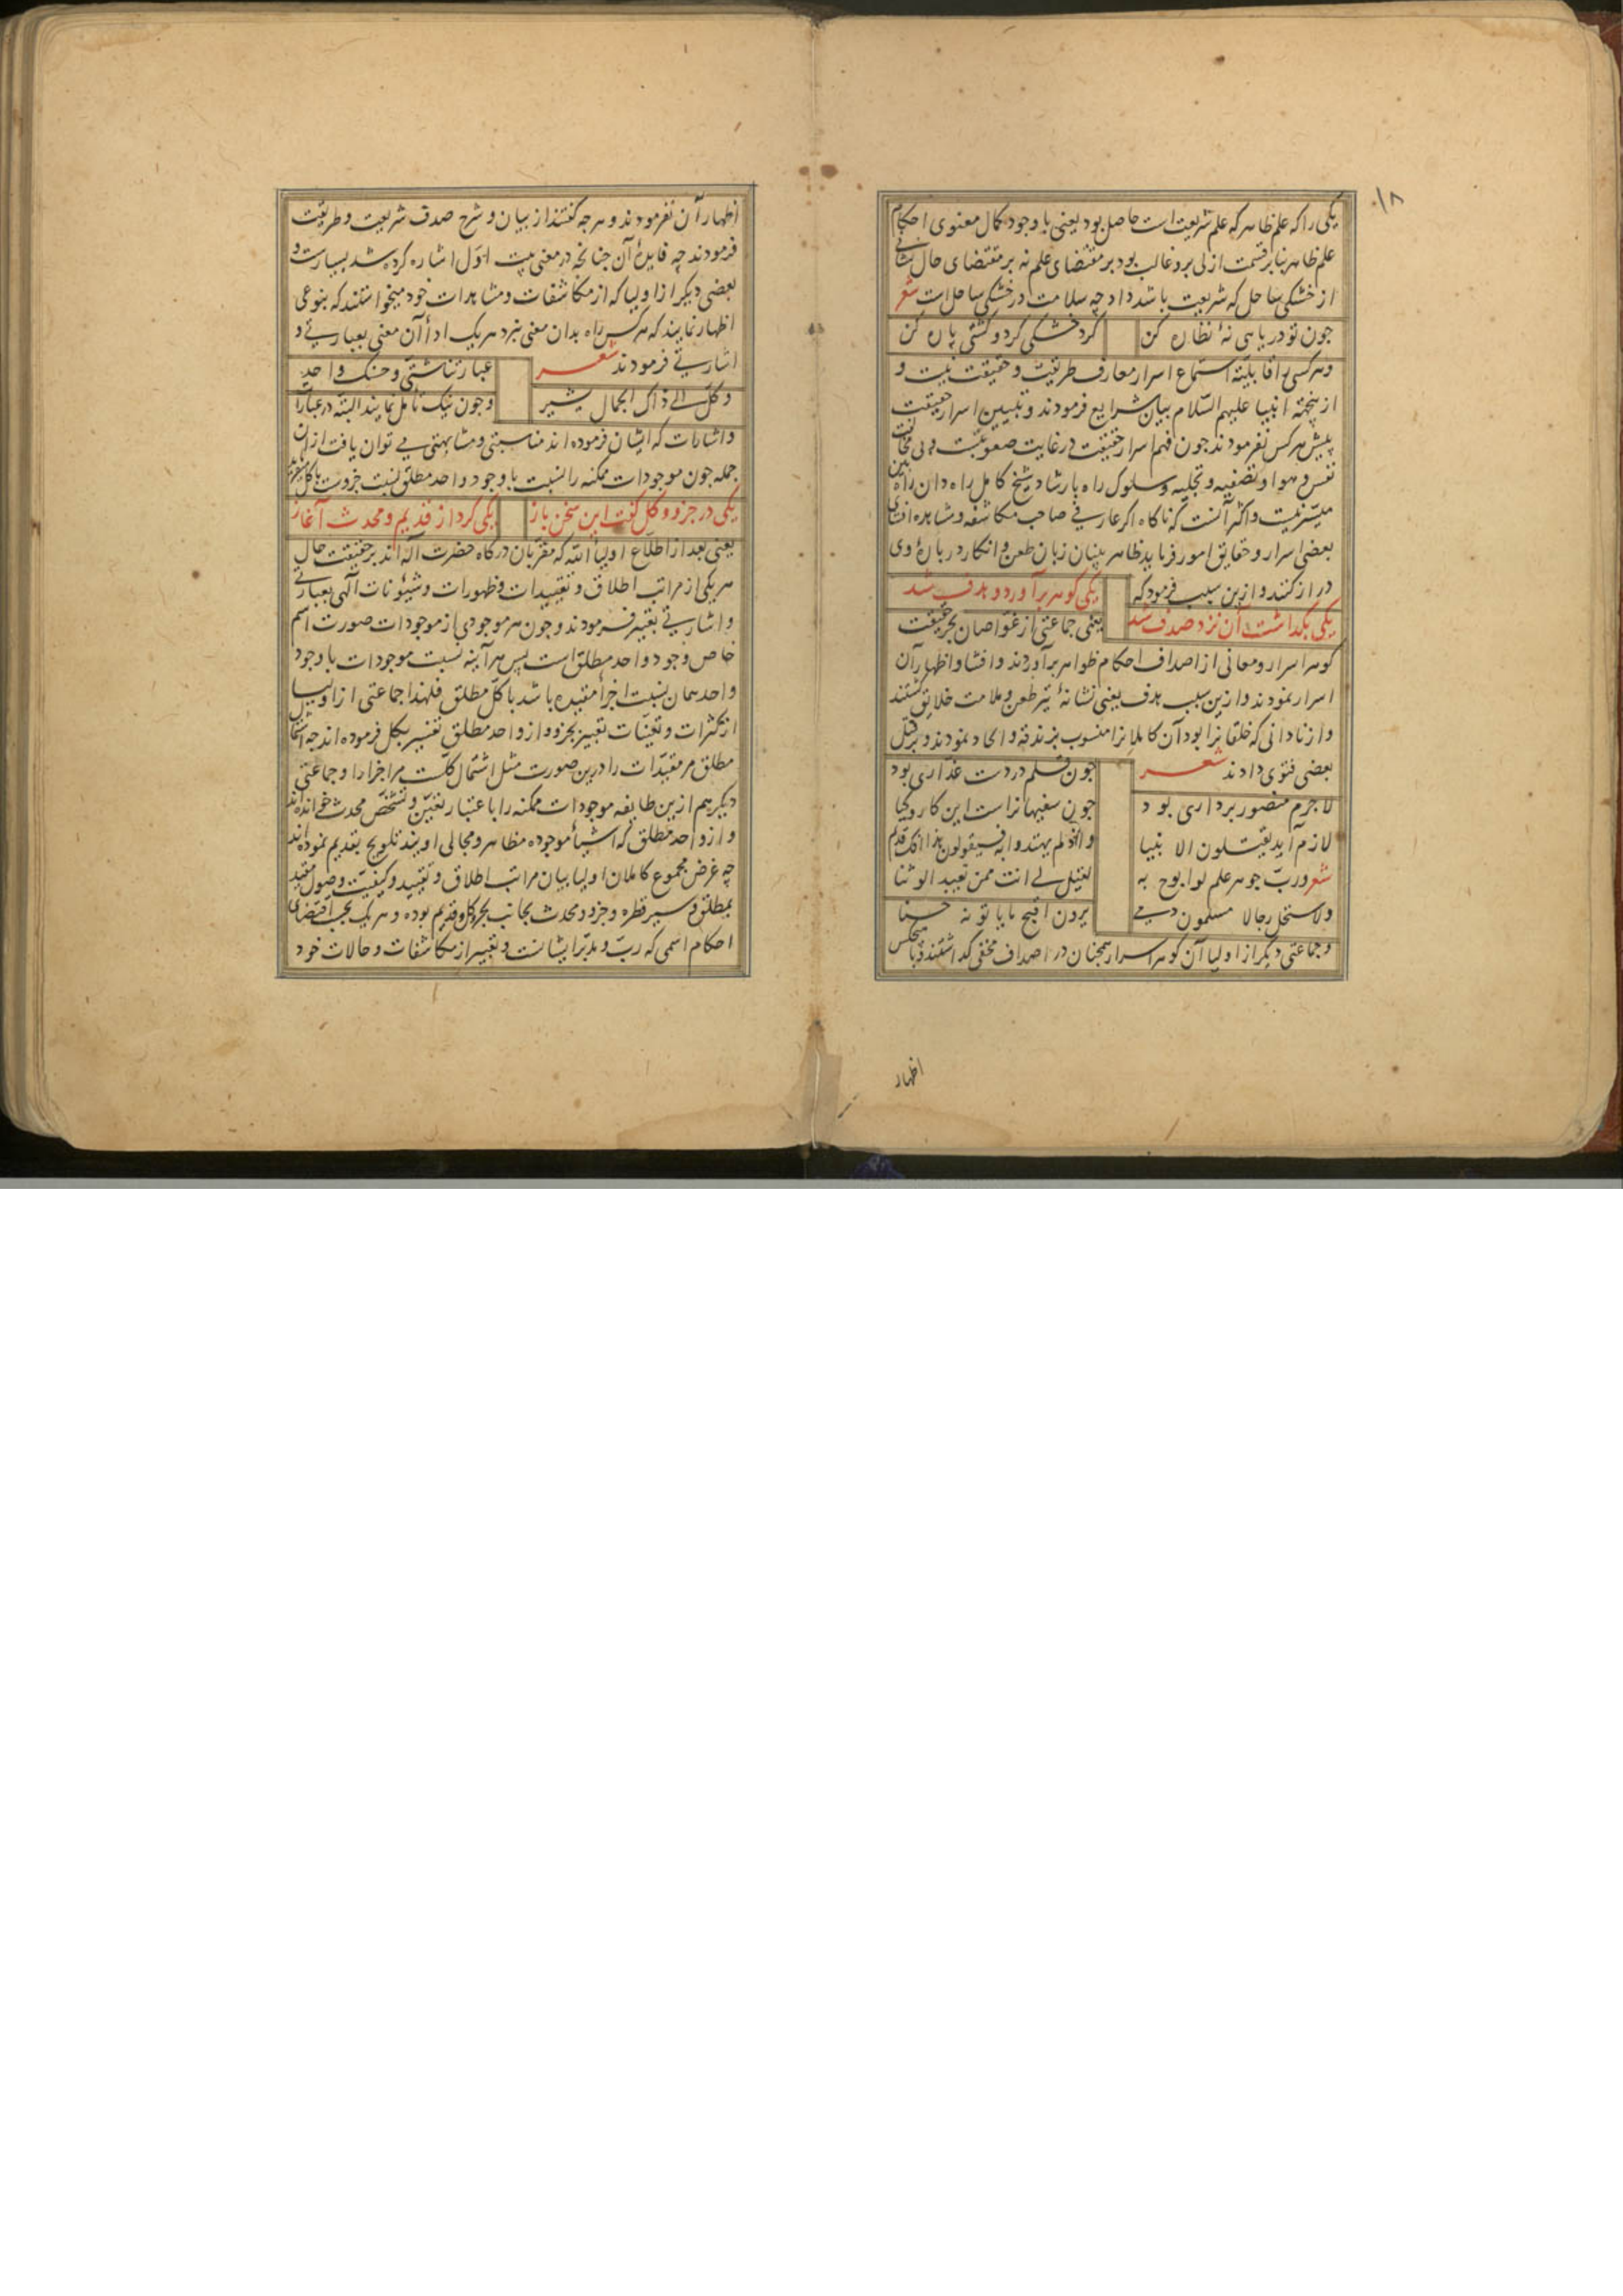 ۱۸
یکی را که علم ظاهر که علم شریعت است حاصل بود یعنی با وجود کمال معنوی احکام
علم ظاهر بنابر قسمت ازلی برو غالب بود بر مقتضای علم نه بر مقتضای حال نشانی
از خشکی ساحل که شریعت باشد داد چه سلامت در خشکی ساحل است شعر
چون تو دریا بی نهٔ نظاره کن کرد خشکی کرد و کشتی پاره کن
و هر کسی را قابلیت استماع اسرار معارف طریقت و حقیقت نیست و
ازینجهة انبیا علیهم السلام بیان شرایع فرمودند و تبیین اسرار حقیقت
پیش هر کس نفرمودند چون فهم اسرار حقیقت در غایت صعوبتست و بی مخالفت
نفس و هوا و تصفیه و تجلیه و سلوک راه بارشاد شیخ کامل راه دان راه بین
میسر نیست و اکثر آنست که ناکاه اکر عارفی صاحب مکاشفه و مشاهده افشای
بعضی اسرار و حقایق امور فرماید ظاهر بینان زبان طعن و انکار در بارهٔ وی
دراز کنند و ازین سبب فرمود که یکی کوهر برآورد و هدف شد
یکی بکذاشت آن نزد صدف شد یعنی جماعتی از غواصان بحر حقیقت
کوهر اسرار و معانی از اصداف احکام ظواهر برآوردند و افشا و اظهار آن
اسرار نمودند و ازین سبب هدف یعنی نشانهٔ تیر طعن و ملامت خلایق کشتند
و از نادانی که خلقانرا بود آن کاملانرا منسوب بزندقه و الحاد نمودند و بر قتل
بعضی فتوی دادند شعر چون قلم در دست غداری بود
لاجرم منصور برداری بود چون سفیهانراست این کار و کیا
لازم آید یقتلون الانبیا و اذ لم یهتدوا به فسیقولون هذا افک قدیم
شعر و رب جوهر علم لو ابوح به لقیل لی انت ممن یعبد الوثنا
ولاستحل رجالا مسلمون دمی یرون اقبح ما یاتونه حسنا
و جماعتی دیکر از اولیا آن کوهر اسرار همچنان در اصداف مخفی کداشتند و با هیچکس
اظهار
اظهار آن نفرمودند و هر چه کفتند از بیان و شرح صدف شریعت و طریقت
فرمودند چه فایدهٔ آن چنانچه در معنی بیت اول اشاره کرده شد بسیارست و
بعضی دیکر از اولیا که از مکاشفات و مشاهدات خود میخواستند که بنوعی
اظهار نمایند که هر کس راه بدان معنی نبرد هر یک اداء آن معنی بعبارتی و
اشارتی فرمودند شعر عباراتنا شتی و حسنک واحد
و کل الی ذاک الجمال یشیر و چون نیک تامل نمایند البته در عبارات
و اشارات که ایشان فرموده اند مناسبتی و مشابهتی می توان یافت از ان
جمله چون موجودات ممکنه را نسبت با وجود واحد مطلق نسبت جزویت با کل
یکی در جزو و کل کفت این سخن باز یکی کرد از قدیم و محدث آغاز
یعنی بعد از اطلاع اولیاء الله که مقربان درکاه حضرت اله اند بر حقیقت حال
هر یکی از مراتب اطلاق و تقییدات و ظهورات و شئونات الهی بعبارتی
و اشارتی تعبیر فرمودند و چون هر موجودی از موجودات صورت اسم
خاص وجود واحد مطلق است پس هر آینه نسبت موجودات با وجود
واحد همان نسبت اجزاء مقیده باشد با کل مطلق فلهذا جماعتی از اولیا
از کثرات و تعینات تعبیر بجزو و از واحد مطلق تفسیر بکل فرموده اند چه اشتمال
مطلق مر مقیدات را درین صورت مثل اشتمال کلست مر اجزا را و جماعتی
دیکر هم ازین طایفه موجودات ممکنه را باعتبار تعین و تشخص محدث خوانده اند
و از واحد مطلق که اشیاء موجوده مظاهر و مجالی اویند تلویح بقدیم نموده اند
چه غرض مجموع کاملان اولیا بیان مراتب اطلاق و تقیید و کیفیت وصول مقید
بمطلق و سیر قطره و جزو و محدث بجانب بحر و کل و قدیم بوده و هر یک بحسب اقتضای
احکام اسمی که رب و مدبر ایشانست تعبیر از مکاشفات و حالات خود